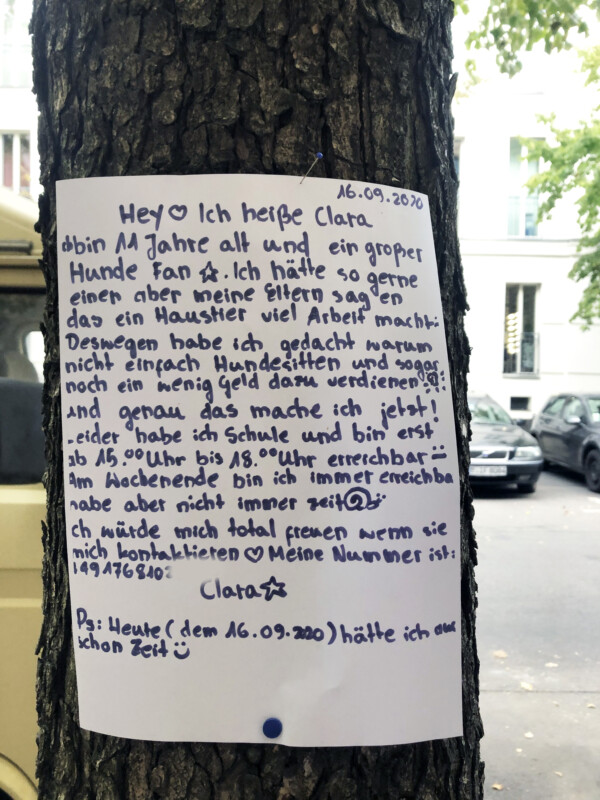 16.09.2020
Hey ♡ Ich heiße Clara
bin 11 Jahre alt und ein großer
Hunde Fan ☆. Ich hätte so gerne
einen aber meine Eltern sagen
das ein Haustier viel Arbeit macht.
Deswegen habe ich gedacht warum
nicht einfach Hundesitten und sogar
noch ein wenig Geld dazu verdienen
und genau das mache ich jetzt!
eider habe ich Schule und bin erst
ab 15.00 Uhr bis 18.00 Uhr erreichbar
Am Wochenende bin ich immer erreichba
habe aber nicht immer zeit
ch würde mich total freuen wenn sie
mich kontaktieren ♡ Meine Nummer ist:
49176810
Clara ☆
Ps: Heute (dem 16.09.2020) hätte ich
schon Zeit